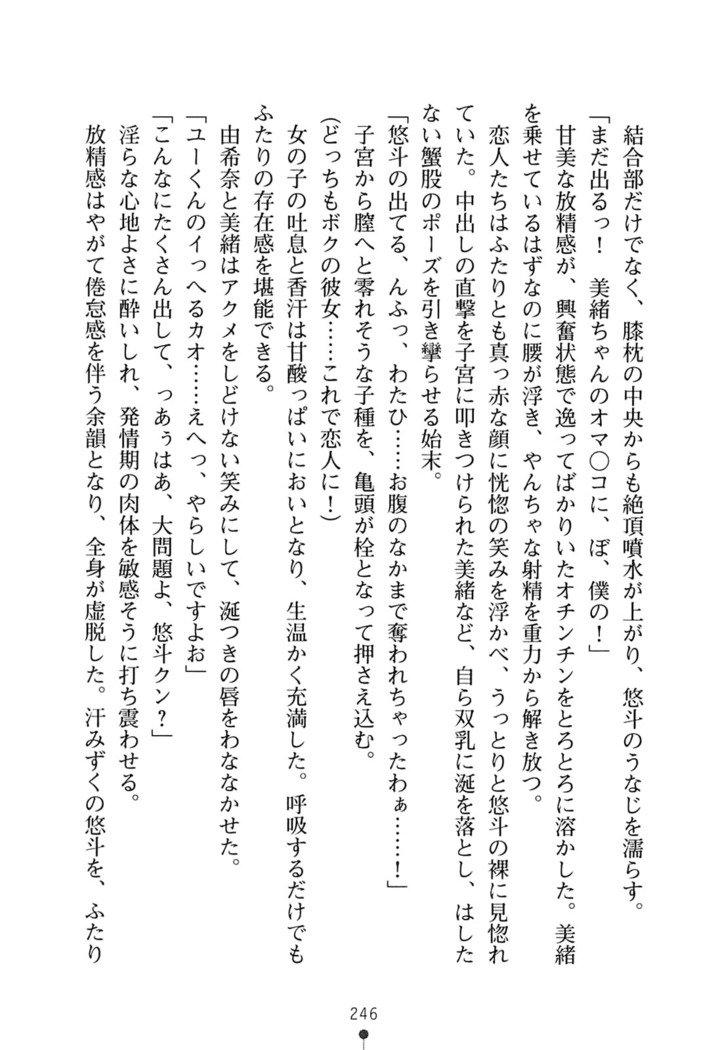 結合部だけでなく、膝枕の中央からも絶頂噴水が上がり、悠斗のうなじを濡らす。
「まだ出るっ！　美緒ちゃんのオマ〇コに、ぼ、僕の！」
甘美な放精感が、興奮状態で逸ってばかりいたオチンチンをとろとろに溶かした。美緒
を乗せているはずなのに腰が浮き、やんちゃな射精を重力から解き放つ。
恋人たちはふたりとも真っ赤な顔に恍惚の笑みを浮かべ、うっとりと悠斗の裸に見惚れ
ていた。中出しの直撃を子宮に叩きつけられた美緒など、自ら双乳に涎を落とし、はした
ない蟹股のポーズを引き攣らせる始末。
「悠斗の出てる、んふっ、わたひ……お腹のなかまで奪われちゃったわぁ……！」
子宮から膣へと零れそうな子種を、亀頭が栓となって押さえ込む。
(どっちもボクの彼女……これで恋人に！)
女の子の吐息と香汗は甘酸っぱいにおいとなり、生温かく充満した。呼吸するだけでも
ふたりの存在感を堪能できる。
由希奈と美緒はアクメをしどけない笑みにして、涎つきの唇をわななかせた。
「ユーくんのイっへるカオ……えへっ、やらしいですよお」
「こんなにたくさん出して、っあぅはあ、大問題よ、悠斗クン？」
淫らな心地よさに酔いしれ、発情期の肉体を敏感そうに打ち震わせる。
放精感はやがて倦怠感を伴う余韻となり、全身が虚脱した。汗みずくの悠斗を、ふたり
246